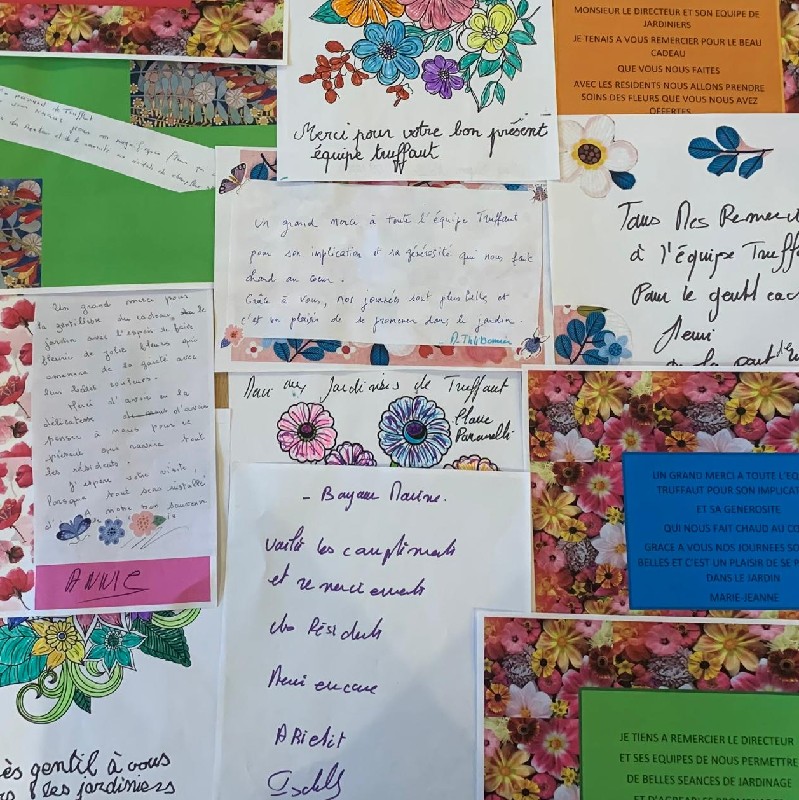 MONSIEUR LE DIRECTEUR ET SON EQUIPE DE
JARDINIERS
JE TENAIS A VOUS REMERCIER POUR LE BEAU
CADEAU
QUE VOUS NOUS FAITES
AVEC LES RESIDENTS NOUS ALLONS PRENDRE
SOINS DES FLEURS QUE VOUS NOUS AVEZ
OFFERTES
Merci pour votre bon présent
équipe truffaut
Un grand merci à toute l'équipe Truffaut
pour son implication et sa générosité qui nous fait
chaud au coeur.
Grâce à vous, nos journées sont plus belles et
c'est un plaisir de se promener dans le jardin.
Tous Mes Remerci
à l'équipe Truffa
Pour le gentil ca
Merci
de la part
Un grand merci pour
la gentillesse du cadeau, le
jardin avec l'espoir de
fleurir de jolie fleurs qui
amènera de la gaité avec
leur belles couleurs.
Merci d'avoir eu la
délicatesse d'avoir
penser à nous pour ce
présent que ravira tout
les résidents.
J'espère votre visite
lorsque tout sera installé
ANNIE
Merci aux Jardiniers de Truffaut
Claire
- Bayam Marine.
voilà les compliments
et remerciements
des Résidents
Merci encore
UN GRAND MERCI A TOUTE L'EQ
TRUFFAUT POUR SON IMPLICAT
ET SA GENEROSITE
QUI NOUS FAIT CHAUD AU CO
GRACE A VOUS NOS JOURNEES SO
BELLES ET C'EST UN PLAISIR DE SE P
DANS LE JARDIN
MARIE-JEANNE
ès gentil à vous
les jardiniers
JE TIENS A REMERCIER LE DIRECTEUR
ET SES EQUIPES DE NOUS PERMETTRE
DE BELLES SEANCES DE JARDINAGE